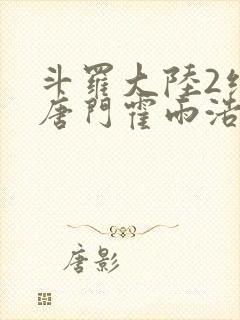 斗羅大陸2絕
唐門霍雨浩
唐影